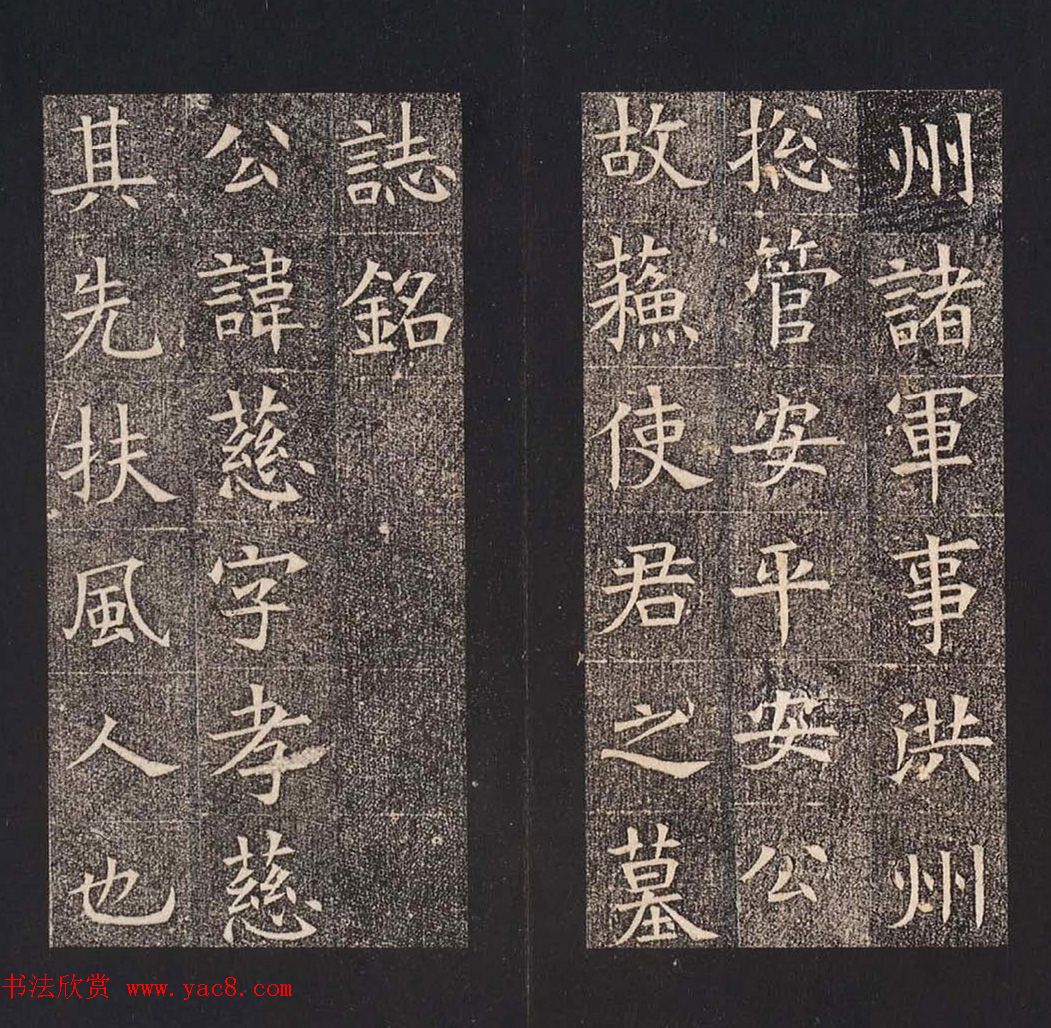 州諸軍事洪州
揔管安平安公
故蘓使君之墓
誌銘
公諱慈字孝慈
其先扶風人也
书法欣赏 www.yac8.com